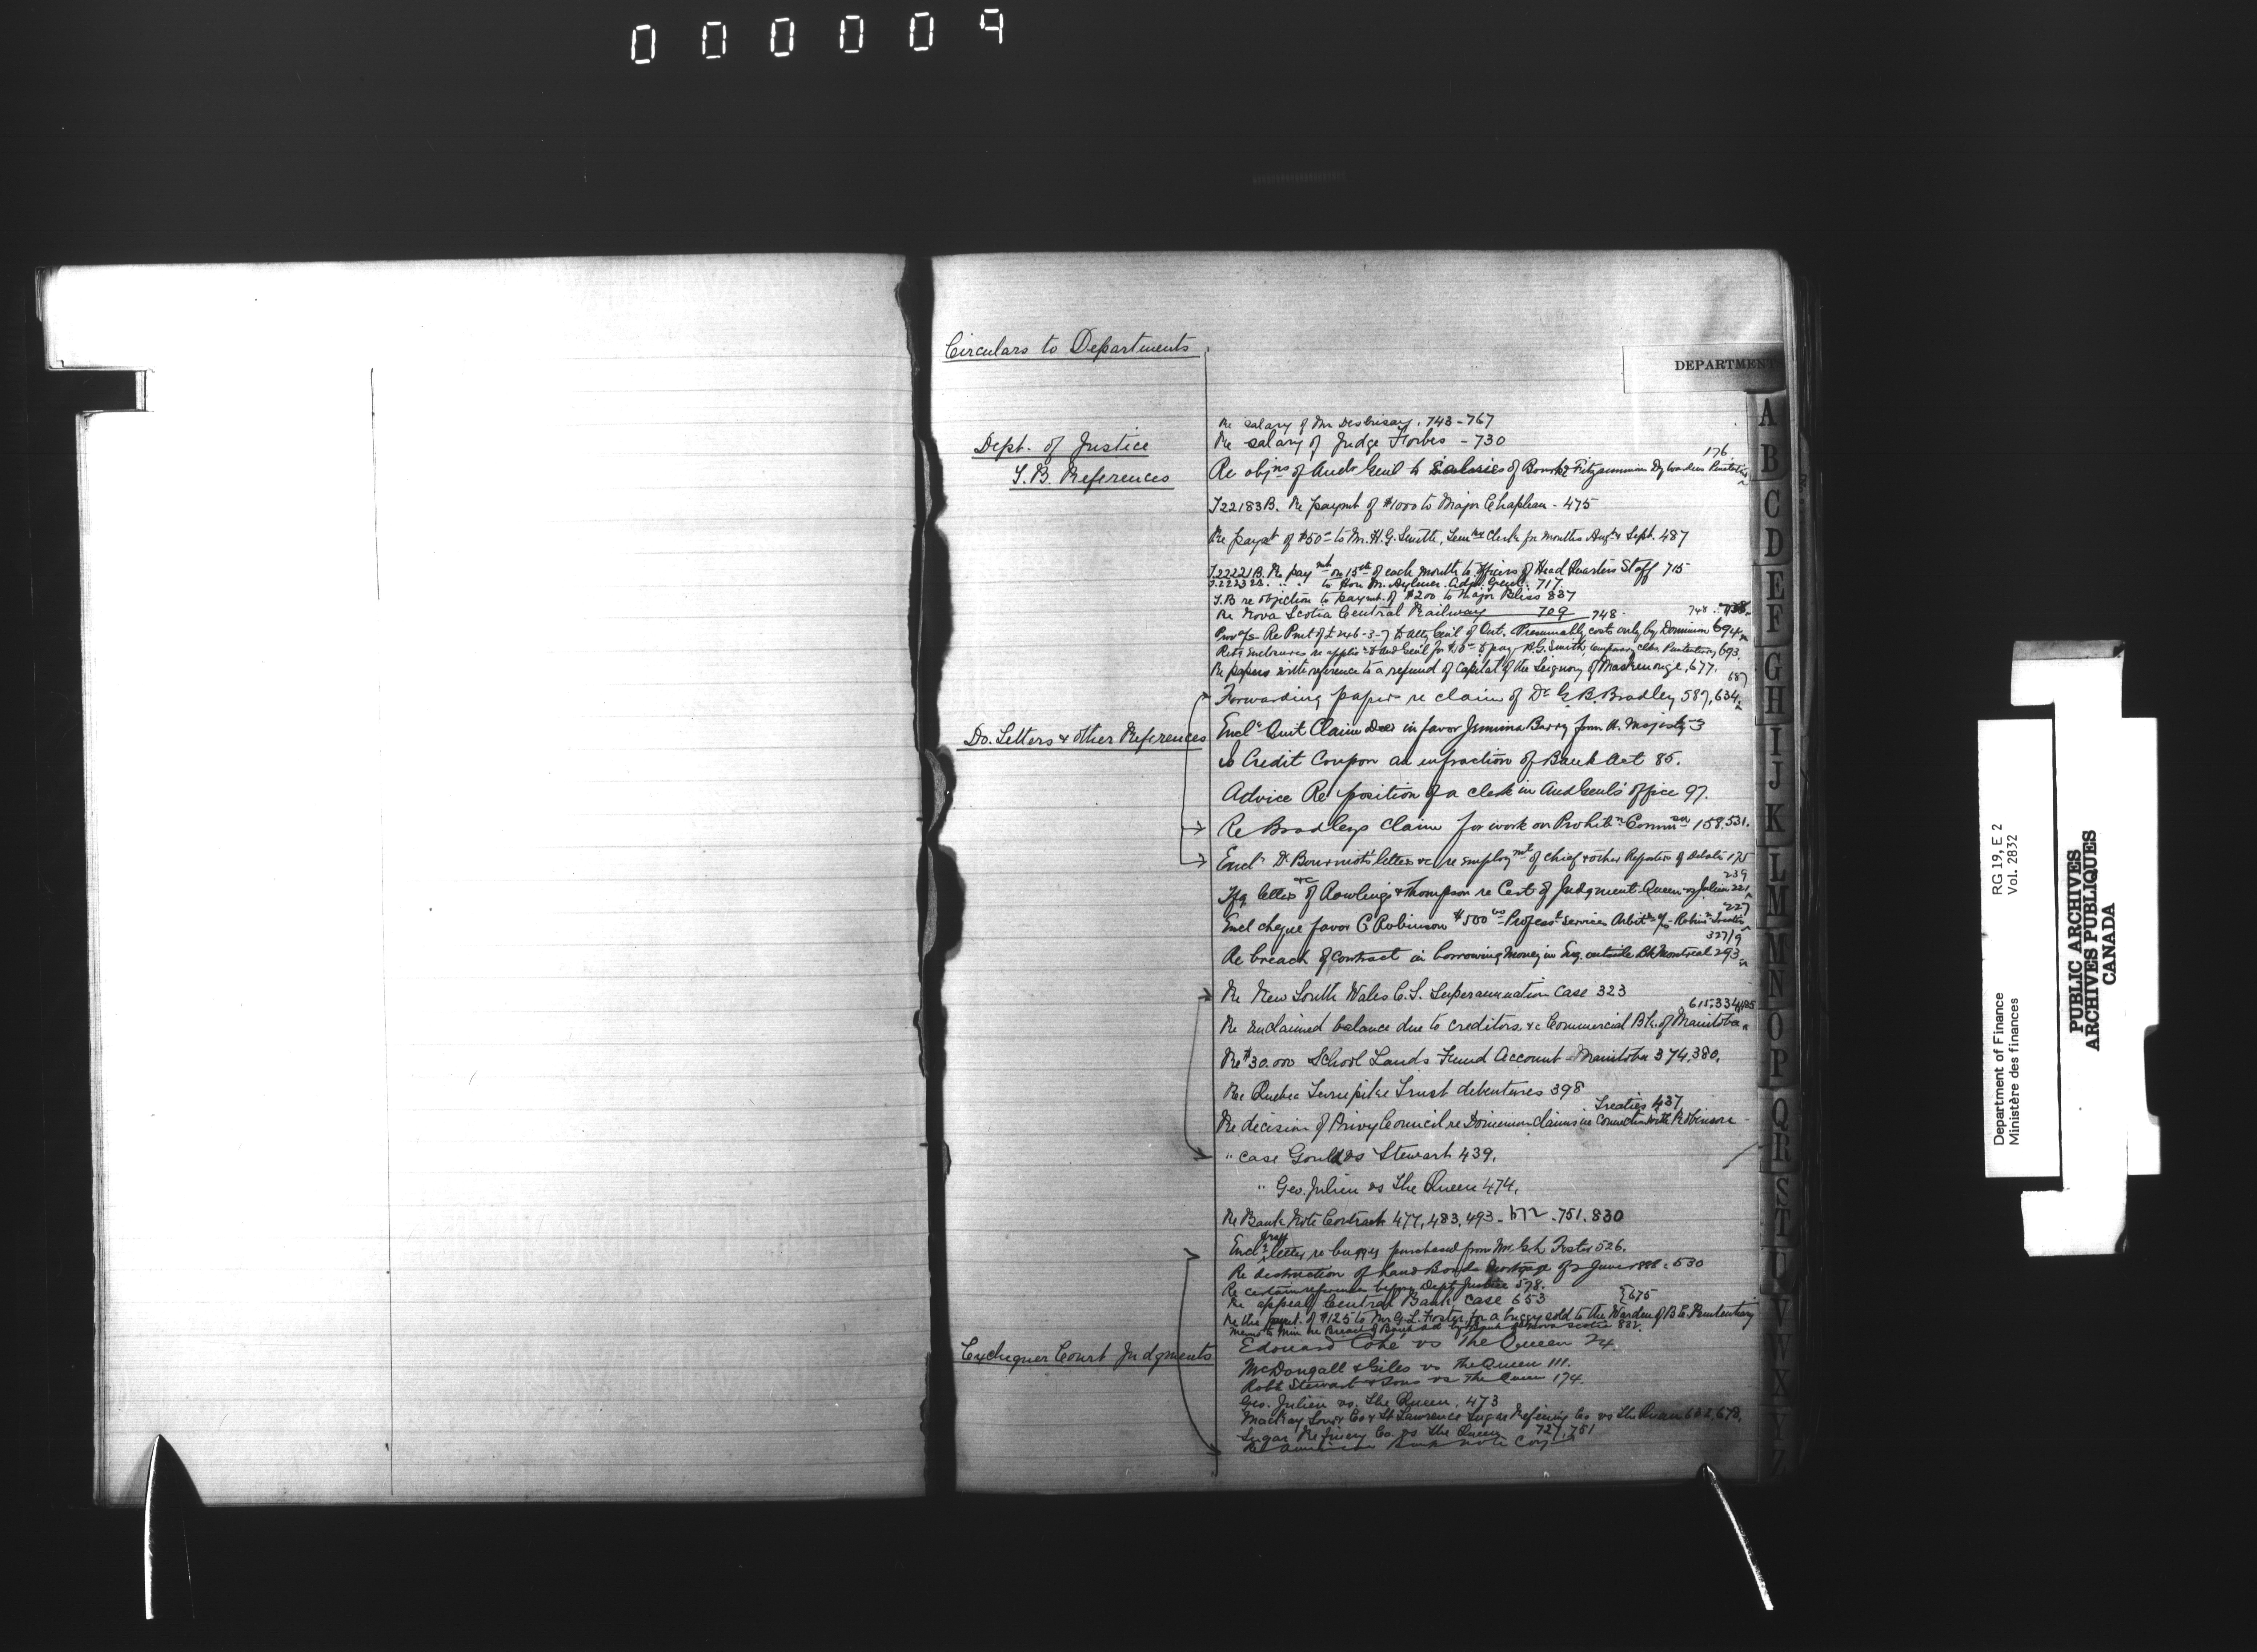 000009
Circulars to Departments
DEPARTMENT
Dept. of Justice
T.B. References
Re salary of Mr Desbrisay. 743-767
Re salary of Judge Forbes - 730
176
Re objns of Audr Genl to Salaries of Bourke & Fitzsimmons Dy Wardens
T22183B. Re paymt of $1000 to Major Chapleau - 475
Re paymt of $50 to Mr. H.G. Smith, Clerk for months Augt & Sept. 487
T22221B. Re paymt on 15th of each month to Officers of Head Quarters Staff 715
to Hon M. Aylmer. Adjt. Genl. 717
T.B re objection to paymt. of $200 to Major Bliss 837
Re Nova Scotia Central Railway 709 748
Re Pmt of £246-3-7 to Atty Genl of Ont. Presumably costs only by Dominion 694
693
Re papers with reference to a refund of Capital of the Seignory of Maskinonge, 677.
687
Forwarding papers re claim of Dr G.B. Bradley 587, 634
Do. Letters & other References
Encl Quit Claim Deed in favor Jemima Barry from H. Majesty 3
Is Credit Coupon an infraction of Bank Act 85.
Advice Re position of a clerk in Aud Genls office 97.
Re Bradleys claim for work on Prohibn Commsn 158, 531.
Encl Dr Bourinots letter &c re employmt of chief & other Reporters of Debates 175
239
letter &c of Rawlings & Thompson re Cert of Judgment Queen vs Julien 221
227
Encl cheque favor C Robinson $500 Professl services
327/9
Re breach of Contract in borrowing Money in Eng. outside Bk Montreal 293
Re New South Wales C.S. Superannuation Case 323
615, 334,
Re unclaimed balance due to creditors &c Commercial Bk. of Manitoba
Re $30.000 School Lands Fund Account - Manitoba 374, 380.
Re Quebec Turnpike Trust debentures 398
Treaties 437
Re decision of Privy Council re Dominion claims in connection with Robinson
" case Gould vs Stewart 439.
" Geo. Julien vs The Queen 474.
Re Bank Note Contract 477, 483, 493 - 572 - 751. 830
Encl draft letter re buggy purchased from Mr. G.L. Foster 526.
Re destruction of Land Bonds Mortgage of 2 June 1888 - 530
Re certain references before Dept Justice 578.
Re appeal, Central Bank case 653
{675
Re the paymt. of $125 to Mr G.L. Foster for a buggy sold to the Warden of B.C. Penitentiary
Exchequer Court Judgments
Edouard Coté vs The Queen 24.
McDougall & Giles vs The Queen 111.
Robt Stewart & Sons vs The Queen 174
Geo. Julien vs. The Queen. 473
St Lawrence Sugar Refining Co vs The Queen 662, 678.
Sugar Refinery Co. vs The Queen 727, 751
Re American Bank Note Coy
A
B
C
D
E
F
G
H
I
J
K
L
M
M
N
O
P
Q
R
S
T
U
V
W
X
Y
Z
Department of Finance RG 19, E 2
Ministère des finances Vol. 2832
PUBLIC ARCHIVES
ARCHIVES PUBLIQUES
CANADA